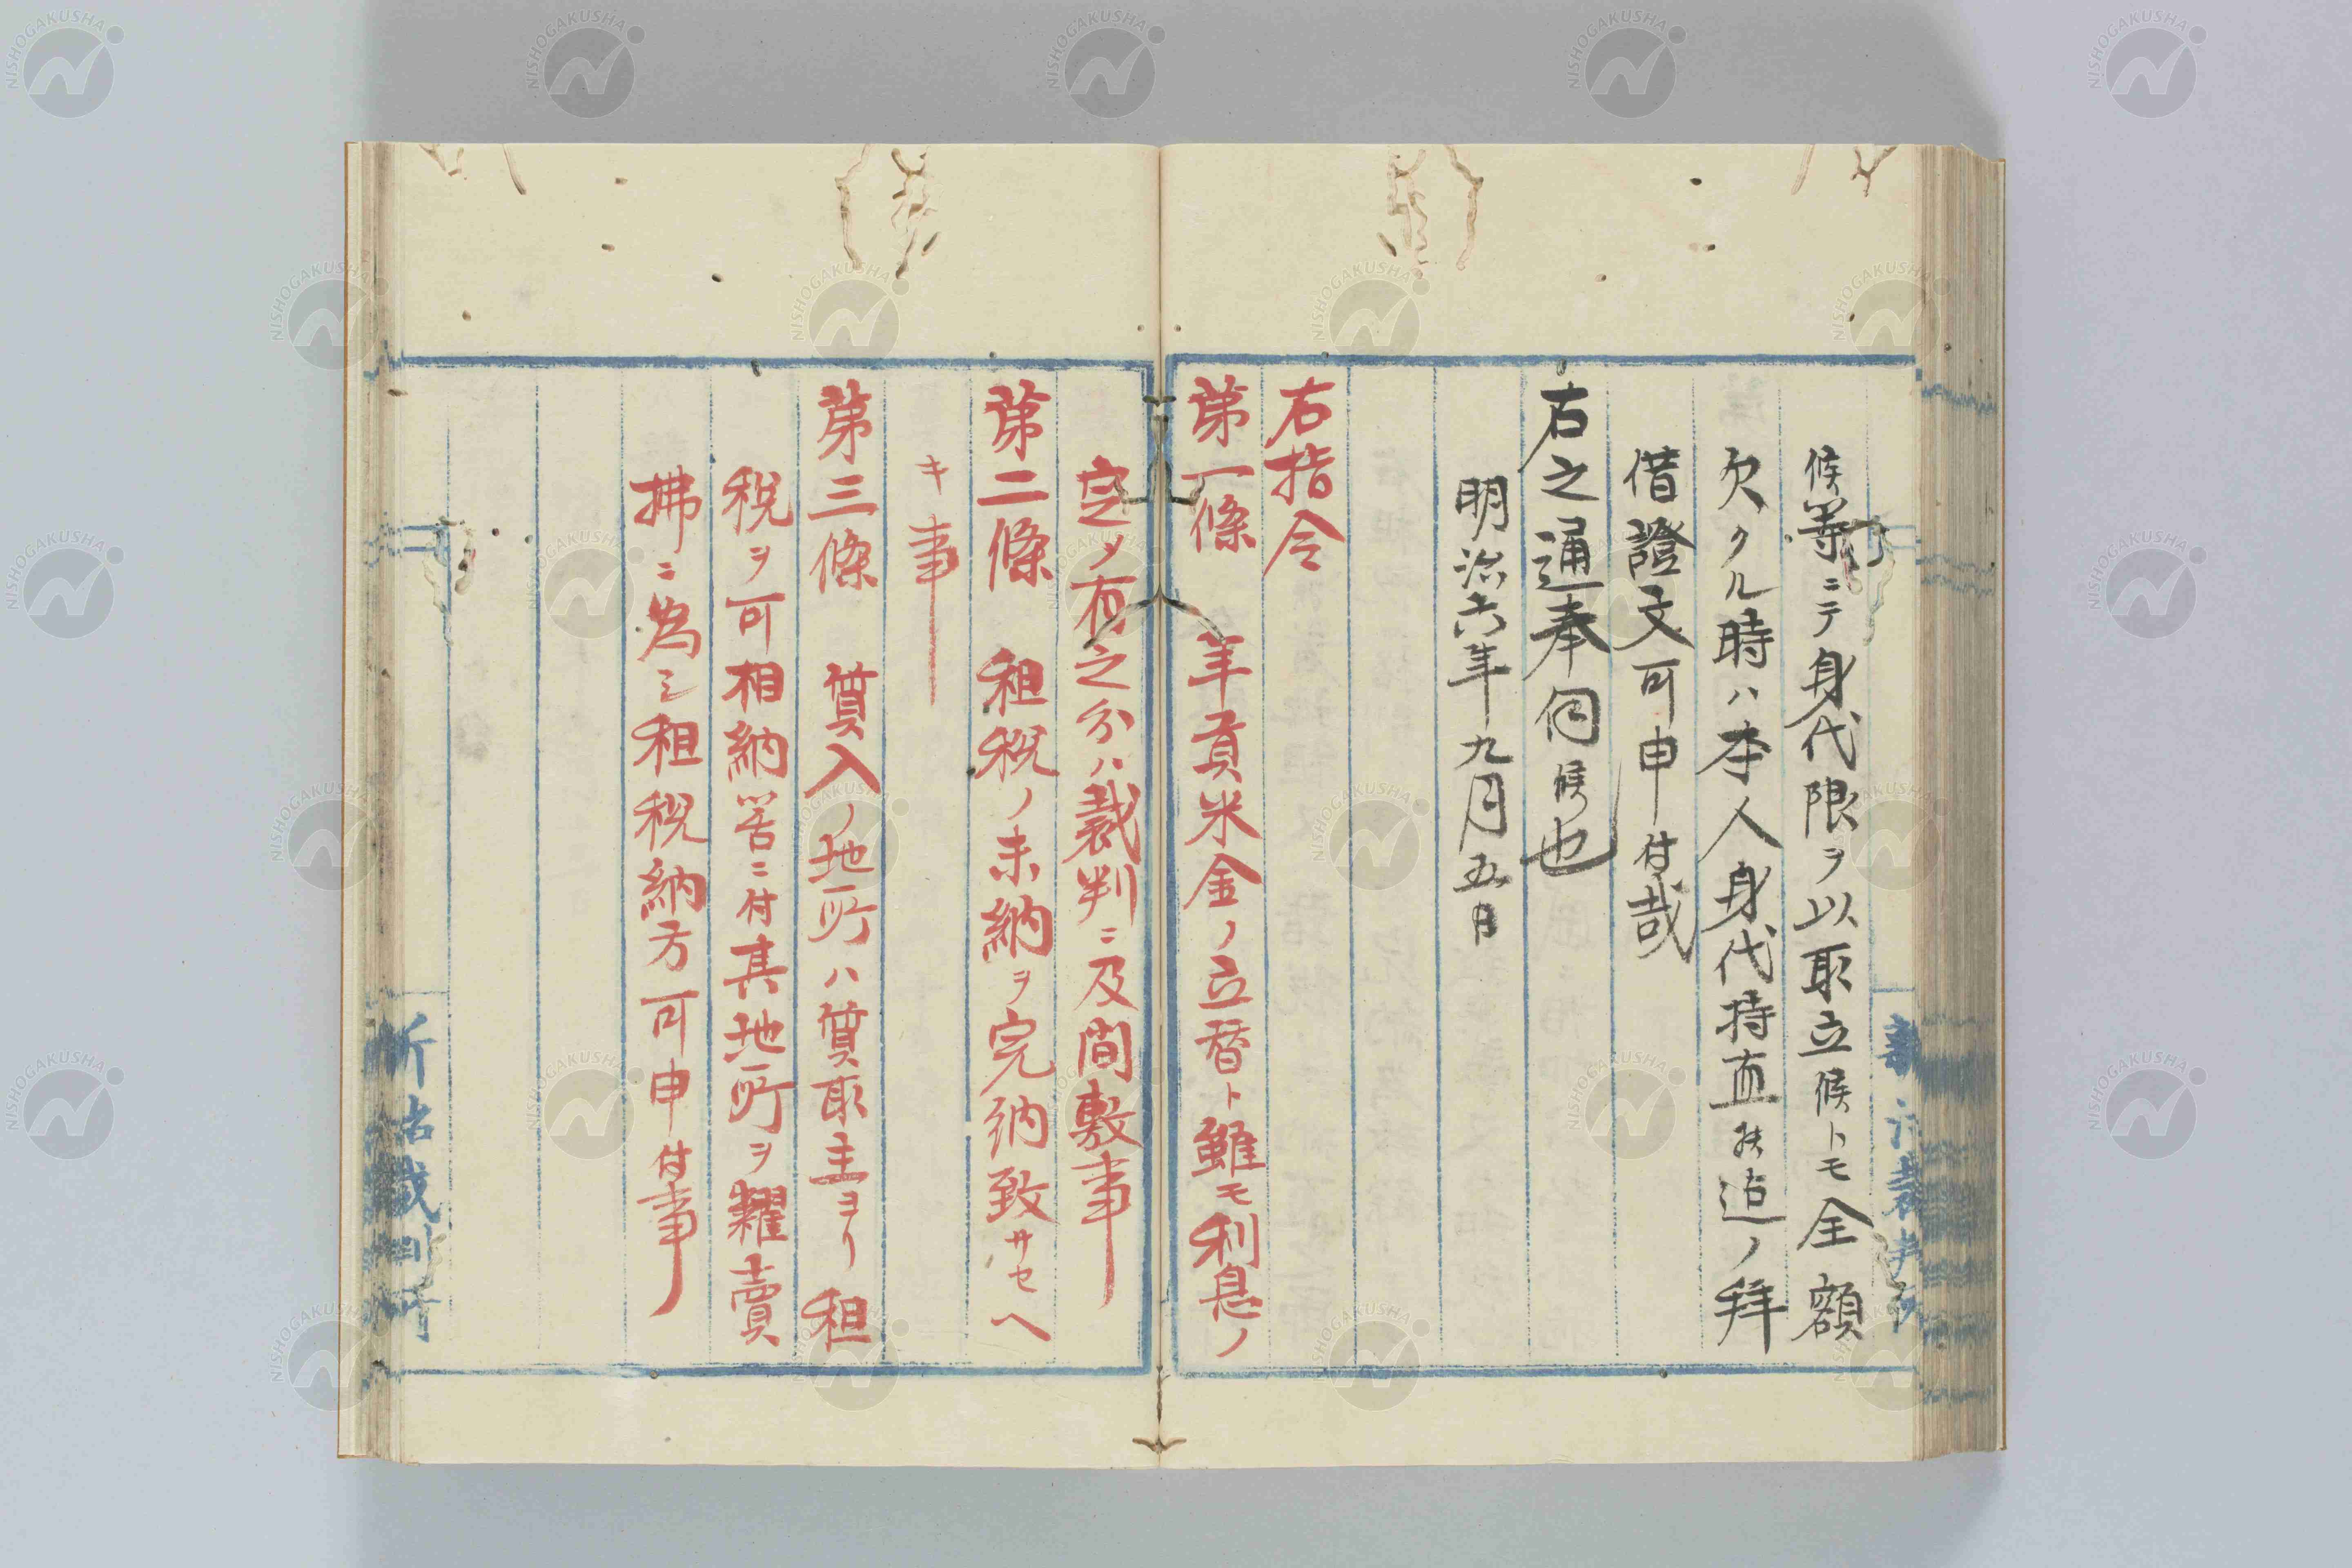 候等ニテ身代限ヲ以取立候トモ全額
欠クル時ハ本人身代持直候迠ノ拜
借證文可申付哉
右之通奉伺候也
明治六年九月五日
右指令
第一條 年貢米金ノ立替ト雖モ利息ノ
定メ有之分ハ裁判ニ及間敷事
第二條 租税ノ未納ヲ完納致サセヘ
キ事
第三條 質入ノ地所ハ質取主ヨリ租
税ヲ可相納筈ニ付其地所ヲ糶賣
拂ニ為シ租税納方可申付事
新治裁判所
新治裁判所
NISHOGAKUSHA